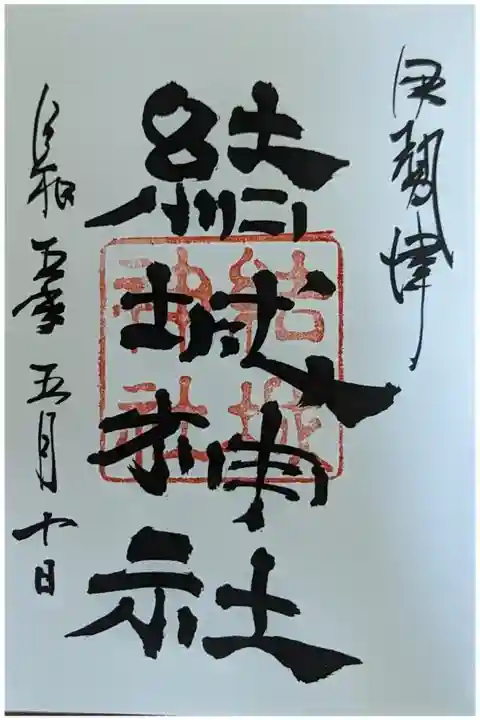 伊勢津
結城神社
結城
神社
令和五年五月十日